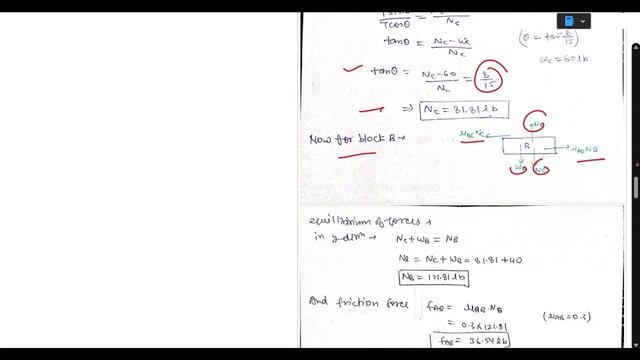 Tcosθ Nc
tanθ = Nc-Wc / Nc
(θ = tan⁻¹ 8/15)
Wc = 60 lb
tanθ = Nc-60 / Nc = 8/15
⇒ Nc = 81.81 lb
Now for block B →
μBC NC
NB
B
μAB NB
WB
NC
equilibrium of forces,
in y dirⁿ → Nc + WB = NB
NB = Nc + WB = 81.81 + 40
NB = 121.81 lb
And friction force fAB = μAB·NB
= 0.3 x 121.81
(μAB = 0.3)
fAB = 36.54 lb